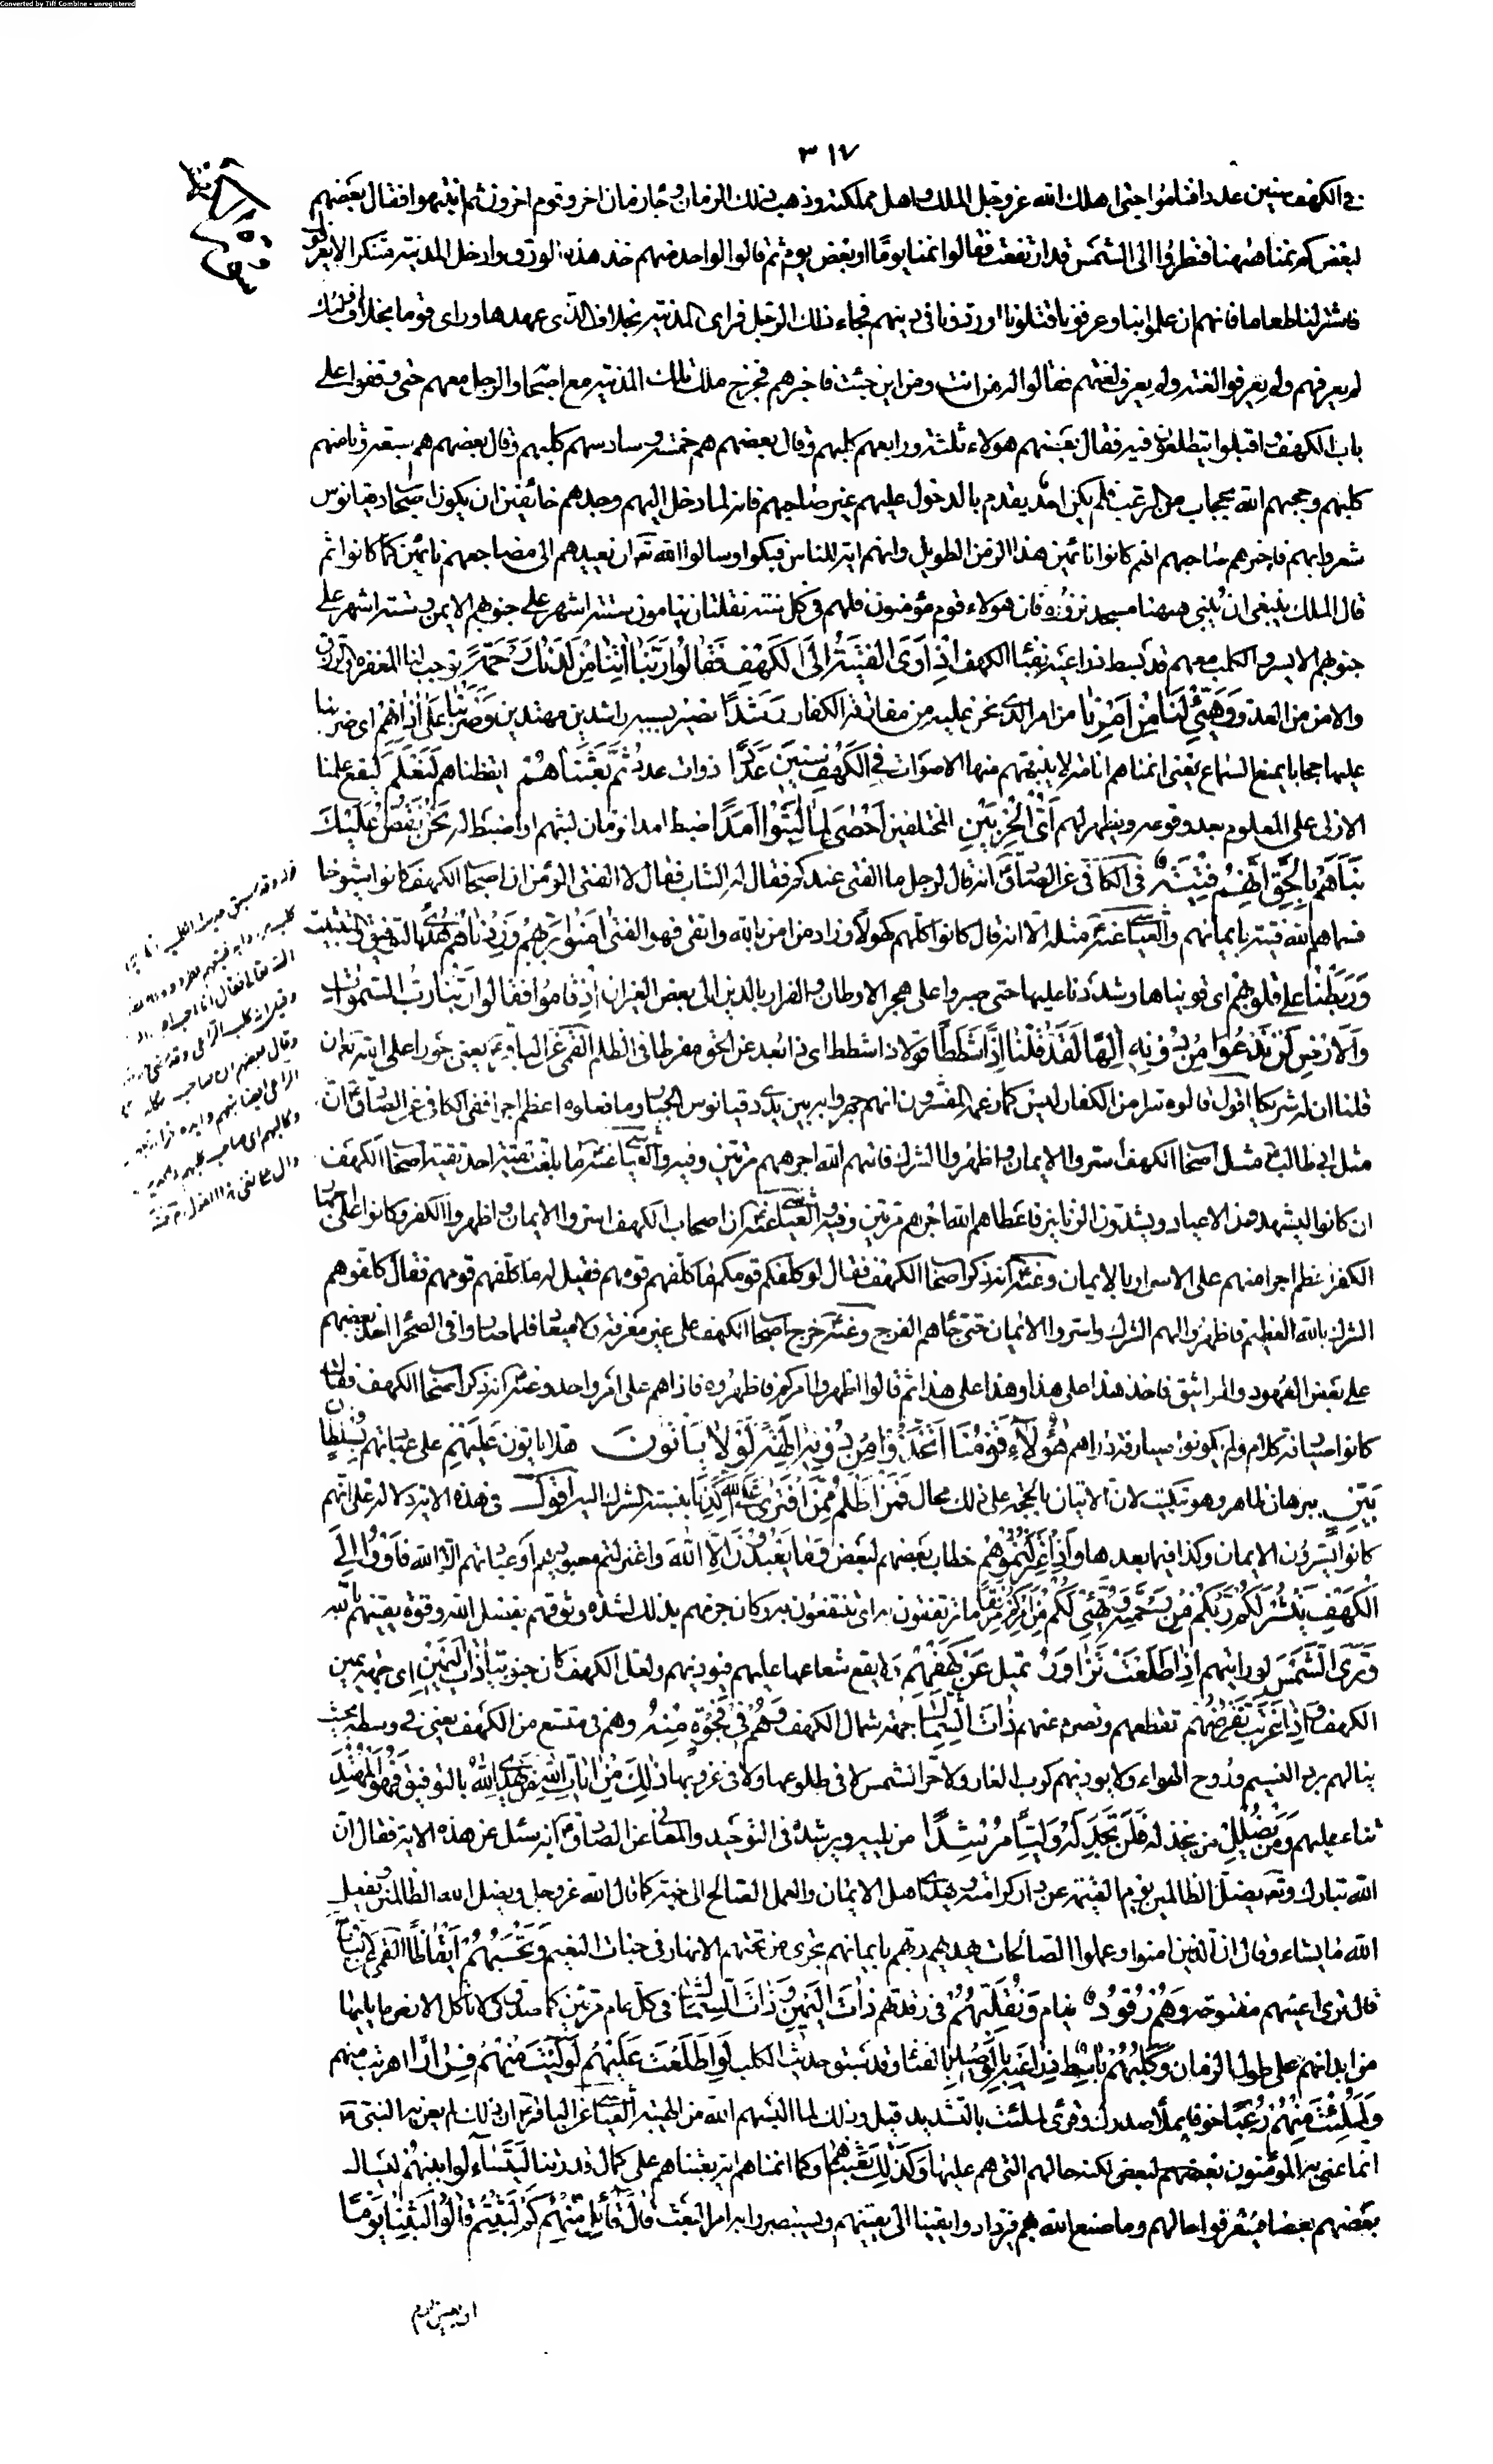 Converted by Tiff Combine - unregistered
٣١٧
في الكهف سنين عددا فناموا حتى اهلك الله عز وجل الملك واهل مملكته وذهب ذلك الزمان وجاء زمان اخر وقوم اخرون ثم انتبهوا فقال بعضهم
لبعض كم نمنا ههنا فنظروا الى الشمس قد ارتفعت فقالوا نمنا يوما او بعض يوم ثم قالوا لواحد منهم خذ هذه الورق وادخل المدينة متنكرا لا يعرفوك
فاشتر لنا طعاما فانهم ان علموا بنا وعرفونا قتلونا او ردونا في دينهم فجاء ذلك الرجل فراى المدينة بخلاف الذي عهدها وراى قوما بخلاف اولئك
لم يعرفهم ولم يعرفوا لغته ولم يعرف لغتهم فقالوا له من انت ومن اين جئت فاخبرهم فخرج ملك تلك المدينة مع اصحابه والرجل معهم حتى وقفوا على
باب الكهف واقبلوا يتطلعون فيه فقال بعضهم هولاء ثلثة ورابعهم كلبهم وقال بعضهم هم خمسة وسادسهم كلبهم وقال بعضهم هم سبعة وثامنهم
كلبهم وحجبهم الله بحجاب من الرعب فلم يكن احد يقدم بالدخول عليهم غير صاحبهم فانه لما دخل اليهم وجدهم خائفين ان يكون اصحاب دقيانوس
شعروا بهم فاخبرهم صاحبهم انهم كانوا نائمين هذا الزمن الطويل وانهم اية للناس فبكوا وسالوا الله تعالى ان يعيدهم الى مضاجعهم نائمين كما كانوا ثم
قال الملك ينبغي ان يبنى ههنا مسجد نزوره فان هولاء قوم مؤمنون فلهم في كل سنة نقلتان ينامون ستة اشهر على جنوبهم الايمن وستة اشهر على
جنوبهم الايسر والكلب معهم قد بسط ذراعيه بفناء الكهف اذ اوى الفتية الى الكهف فقالوا ربنا اتنا من لدنك رحمة توجب لنا المغفرة والرزق
والامن من العدو وهيئ لنا من امرنا من امر الذي نحن عليه من مفارقة الكفار رشدا نصير بسببه راشدين مهتدين وضربنا على اذانهم اى ضربنا
عليها حجابا يمنع السماع يعنى انمناهم انامة لا ينبههم منها الاصوات في الكهف سنين عددا ذوات عدد ثم بعثناهم ايقظناهم لنعلم ليقع علمنا
الازلى على المعلوم بعد وقوعه ويظهر لهم اى الحزبين المختلفين احصى لما لبثوا امدا ضبط امدا لزمان لبثهم او اضبط له نحن نقص عليك
نباهم بالحق انهم فتية في الكافي عن الصادق انه قال لرجل ما الفتى عندكم فقال له الشاب فقال لا الفتى المؤمن ان اصحاب الكهف كانوا شيوخا
فسماهم الله فتية بايمانهم والعياشي عنه مثله الا انه قال كانوا كلهم كهولا وزاد من امن بالله واتقى فهو الفتى امنوا بربهم وزدناهم هدى بالتوفيق والتثبيت
وربطنا على قلوبهم اى قويناها وشددنا عليها حتى صبروا على هجر الاوطان والفرار بالدين الى بعض الغيران اذ قاموا فقالوا ربنا رب السموات
والارض لن ندعوا من دونه الها لقد قلنا اذا شططا قولا ذا شطط اى ذا بعد عن الحق مفرطا في الظلم القمي عن الباقر يعنى جورا على الله تعالى ان
قلنا ان له شريكا اقول قالوه سرا من الكفار ليس كما زعمه المفسرون انهم جهروا به بين يدي دقيانوس الجبار وما فعلوه اعظم اجرا ففى الكافي عن الصادق ان
مثل ابي طالب مثل اصحاب الكهف اسروا الايمان واظهروا الشرك فاتيهم الله اجرهم مرتين وفيه والعياشي عنه ما بلغت تقية احد تقية اصحاب الكهف
ان كانوا ليشهدون الاعياد ويشدون الزنانير فاعطاهم الله اجرهم مرتين وفيه والعياشي عنه ان اصحاب الكهف اسروا الايمان واظهروا الكفر وكانوا على اجهار
الكفر اعظم اجرا منهم على الاسرار بالايمان وعنه انه ذكر اصحاب الكهف فقال لو كلفكم قومكم ما كلفهم قومهم فقيل له ما كلفهم قومهم فقال كلفوهم
الشرك بالله العظيم فاظهروا لهم الشرك واسروا الايمان حتى جاءهم الفرج وعنه خرج اصحاب الكهف على غير معرفة ولا ميعاد فلما صاروا في الصحراء اخذ بعضهم
على بعض العهود والمواثيق فاخذ هذا على هذا وهذا على هذا ثم قالوا اظهروا امركم فاظهروه فاذا هم على امر واحد وعنه انه ذكر اصحاب الكهف فقال
كانوا صيارفة كلام ولم يكونوا صيارفة دراهم هؤلاء قومنا اتخذوا من دونه الهة لولا ياتون هلا ياتون عليهم على عبادتهم بسلطان
بين ببرهان ظاهر وهو تبكيت لان الاتيان بالحجة على ذلك محال فمن اظلم ممن افترى على الله كذبا بنسبة الشرك اليه اقول في هذه الاية دلالة على انهم
كانوا يسرون الايمان وكذا فيما بعدها واذ اعتزلتموهم خطاب بعضهم لبعض وما يعبدون الا الله واعتزلتم معبوديهم او عبادتهم الا الله فاووا الى
الكهف ينشر لكم ربكم من رحمته ويهيئ لكم من امركم مرفقا ما ترتفقون به اى تنتفعون به وكان جزمهم بذلك لشدة وثوقهم بفضل الله وقوة يقينهم بالله
وترى الشمس لو رايتهم اذا طلعت تزاور تميل عن كهفهم ولا يقع شعاعها عليهم فيوذيهم ولعل الكهف كان جنوبيا ذات اليمين اى جهة يمين
الكهف واذا غربت تقرضهم تقطعهم وتصرم عنهم ذات الشمال جهة شمال الكهف وهم في فجوة منه وهم في متسع من الكهف يعنى في وسطه بحيث
ينالهم برد النسيم وروح الهواء ولا يوذيهم كرب الغار ولا حر الشمس لا في طلوعها ولا في غروبها ذلك من ايات الله من يهد الله بالتوفيق فهو المهتد
ثناء عليهم ومن يضلل من يخذله فلن تجد له وليا مرشدا من يليه ويرشده في التوحيد والمعاني عن الصادق انه سئل عن هذه الاية فقال ان
الله تبارك وتعالى يضل الظالمين يوم القيمة عن دار كرامته ويهدي اهل الايمان والعمل الصالح الى جنته كما قال الله عز وجل ويضل الله الظالمين ويفعل
الله ما يشاء وقال ان الذين امنوا وعملوا الصالحات يهديهم ربهم بايمانهم تجرى من تحتهم الانهار في جنات النعيم وتحسبهم ايقاظا القمي عن الباقر
قال ترى اعينهم مفتوحة وهم رقود نيام ونقلبهم في رقدتهم ذات اليمين وذات الشمال في كل عام مرتين كما مر كى لا تاكل الارض ما يليها
من ابدانهم على طول الزمان وكلبهم باسط ذراعيه بالوصيد بالفناء وقد سبق حديث الكلب لو اطلعت عليهم لوليت منهم فرارا لهربت منهم
ولملئت منهم رعبا خوفا يملأ صدرك وقرئ لملئت بالتشديد قيل وذلك لما البسهم الله من الهيبة العياشي عن الباقر ان ذلك لم يعن به النبي
انما عنى به المؤمنون بعضهم لبعض لكنه حالهم التى هم عليها وكذلك بعثناهم وكما انمناهم اية بعثناهم على كمال قدرتنا ليتساءلوا بينهم ليسال
بعضهم بعضا فيتعرفوا حالهم وما صنع الله بهم فيزدادوا يقينا الى يقينهم ويستبصروا به امر البعث قال قائل منهم كم لبثتم قالوا لبثنا يوما